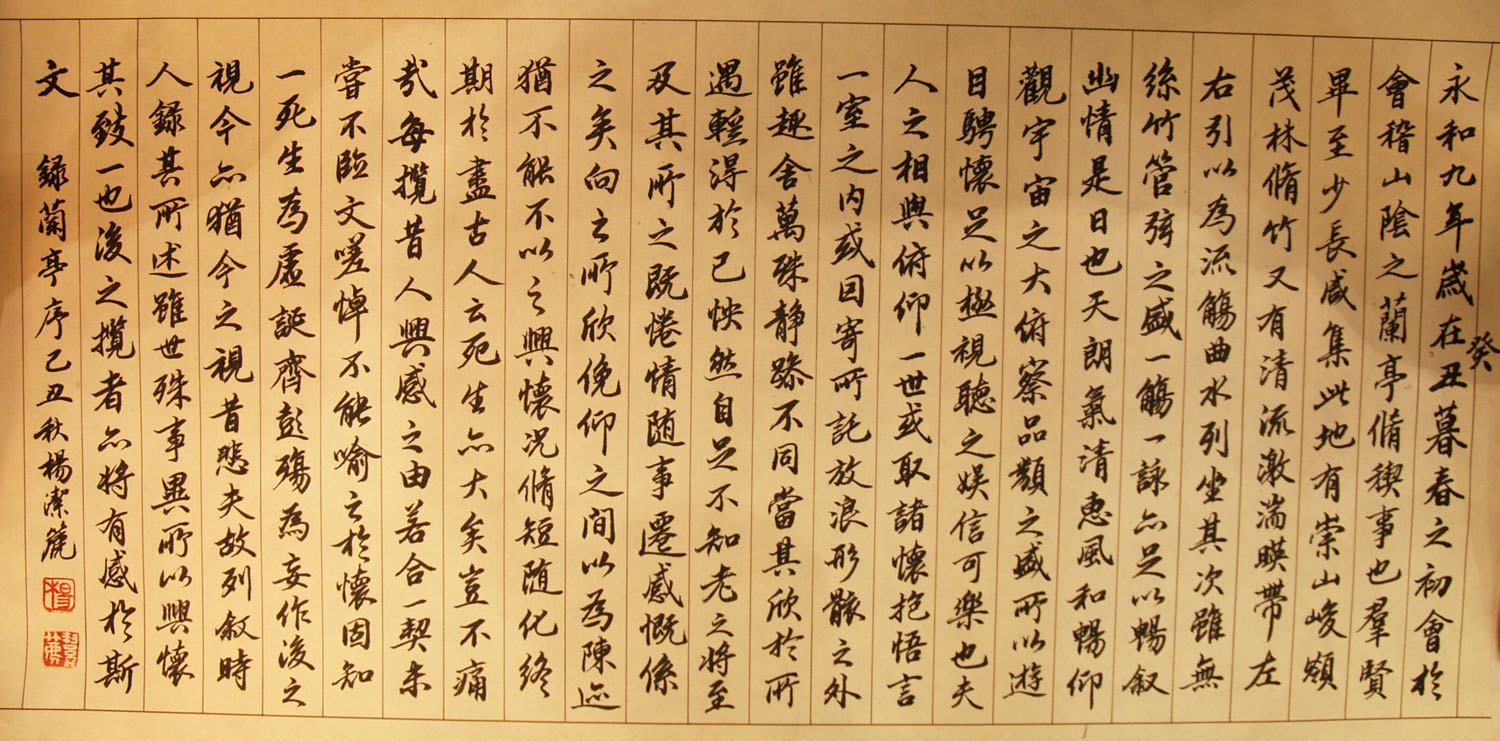 永和九年歲在癸丑暮春之初會於
會稽山陰之蘭亭脩稧事也羣賢
畢至少長咸集此地有崇山峻領
茂林脩竹又有清流激湍暎帶左
右引以為流觴曲水列坐其次雖無
絲竹管弦之盛一觴一詠亦足以暢叙
幽情是日也天朗氣清惠風和暢仰
觀宇宙之大俯察品類之盛所以遊
目騁懷足以極視聽之娛信可樂也夫
人之相與俯仰一世或取諸懷抱悟言
一室之内或因寄所託放浪形骸之外
雖趣舍萬殊静躁不同當其欣於所
遇輕得於己怏然自足不知老之將至
及其所之既惓情随事遷感慨係
之矣向之所欣俛仰之間以為陳迹
猶不能不以之興懷況脩短随化終
期於盡古人云死生亦大矣豈不痛
哉每攬昔人興感之由若合一契未
嘗不臨文嗟悼不能喻之於懷固知
一死生為虛誕齊彭殤為妄作後之
視今亦猶今之視昔悲夫故列叙時
人録其所述雖世殊事異所以興懷
其致一也後之攬者亦將有感於斯
文 録蘭亭序己丑秋楊潔麓
楊